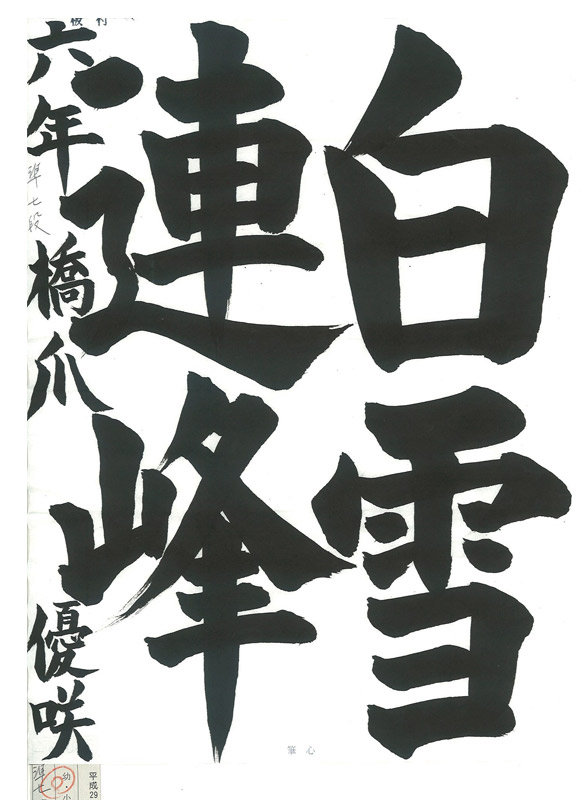 白雪
連峰
六年 橋爪 優咲
準七段
筆心
平成29
幼・小
準七